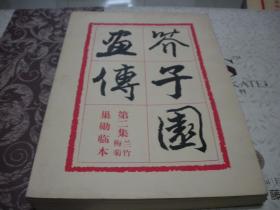 芥子園
畫傳
第二集
兰竹
梅菊
巢勛临本